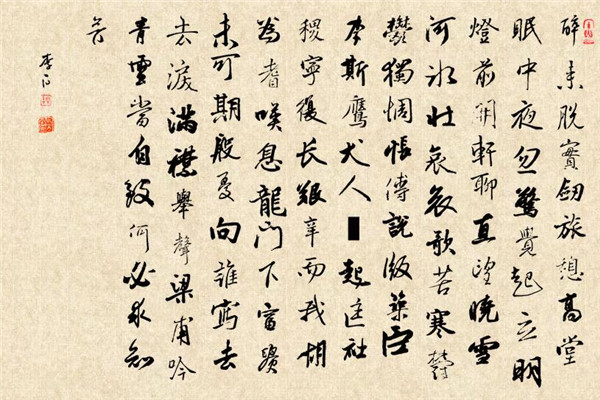 醉來脱寶劍旅憩高堂
眠中夜忽驚覺起立明
燈前開軒聊直望曉雪
河冰壯哀哀歌苦寒鬱
鬱獨惆悵傅說版築臣
李斯鷹犬人起匡社
稷寧復长艱辛而我胡
為者嘆息龍門下富貴
未可期殷憂向誰寫去
去淚滿襟舉聲梁甫吟
青雲當自致何必求知
音
李白